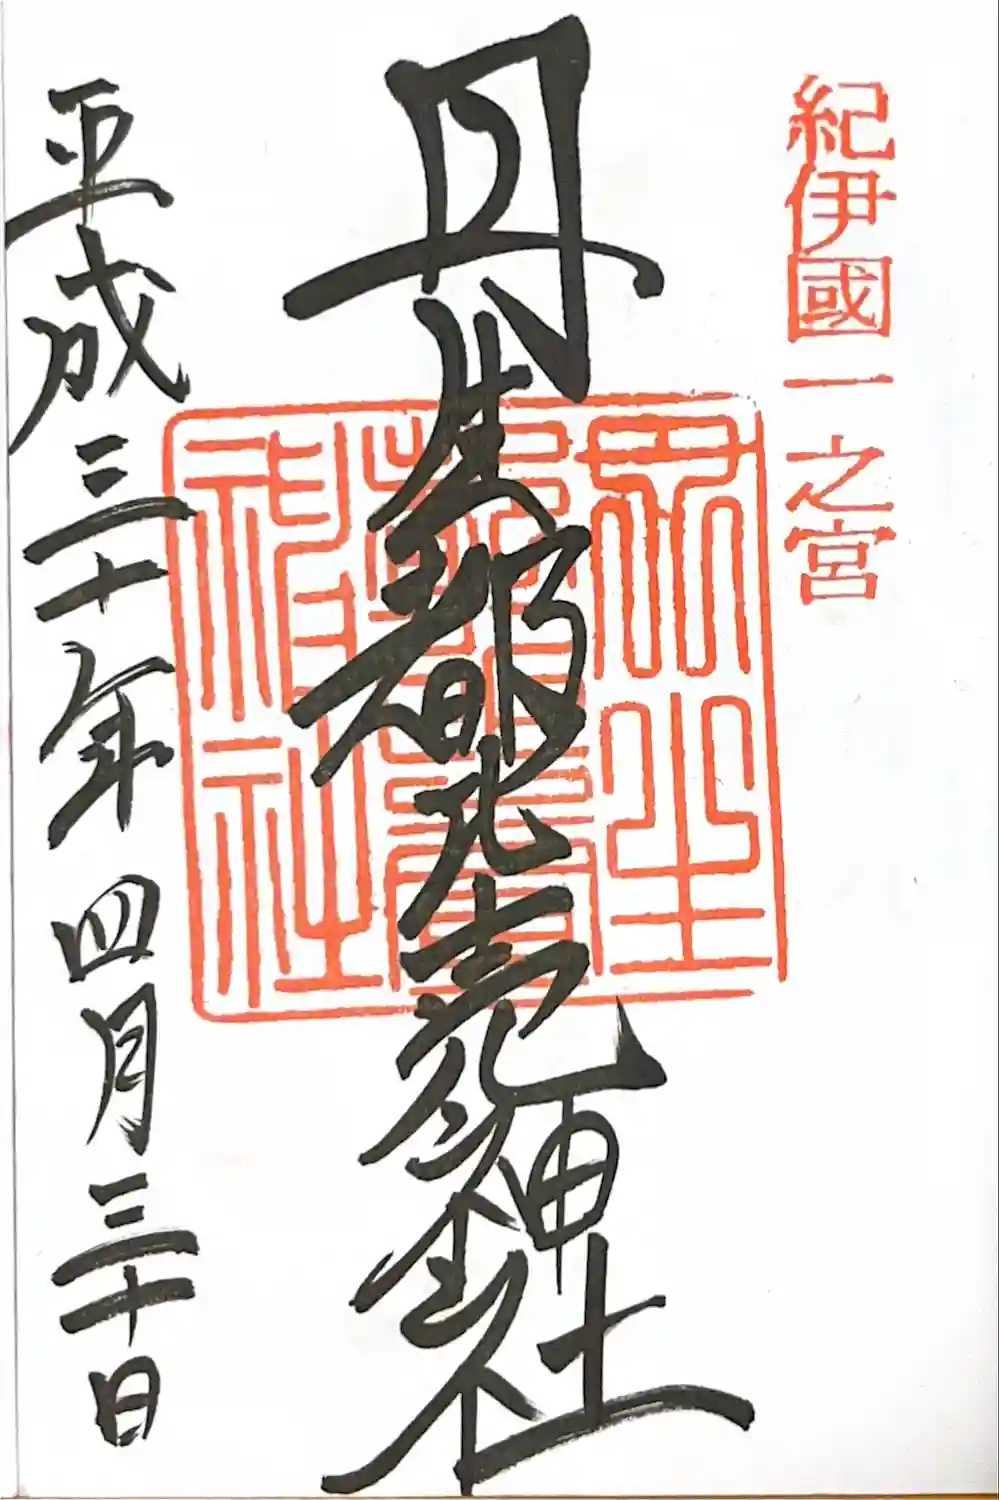 紀伊國一之宮
丹生都比売神社
丹生都比賣神社
平成三十年四月三十日